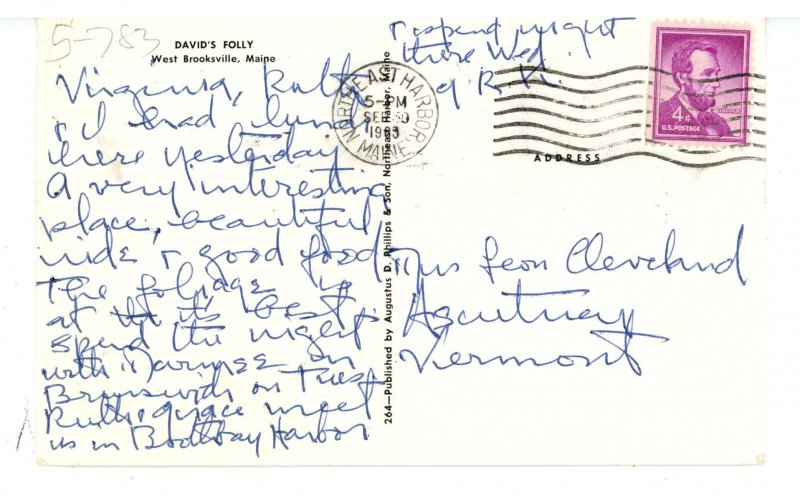 5-783
DAVID'S FOLLY
West Brooksville, Maine
Virginia, Ruth
& I had lunch
here yesterday
A very interesting
place, beautiful
ride & good food
The foliage is
at its best.
Spend the night
with in
Brunswick on Tues.
Ruth & Grace meet
us in Boothbay Harbor
& spend night
there Wed.
NORTHEAST HARBOR
5-PM
SEP 30
1963
MAINE
264—Published by Augustus D. Phillips & Son, Northeast Harbor, Maine
4¢
LINCOLN
U.S. POSTAGE
ADDRESS
Mrs Leon Cleveland
Ascutney
Vermont